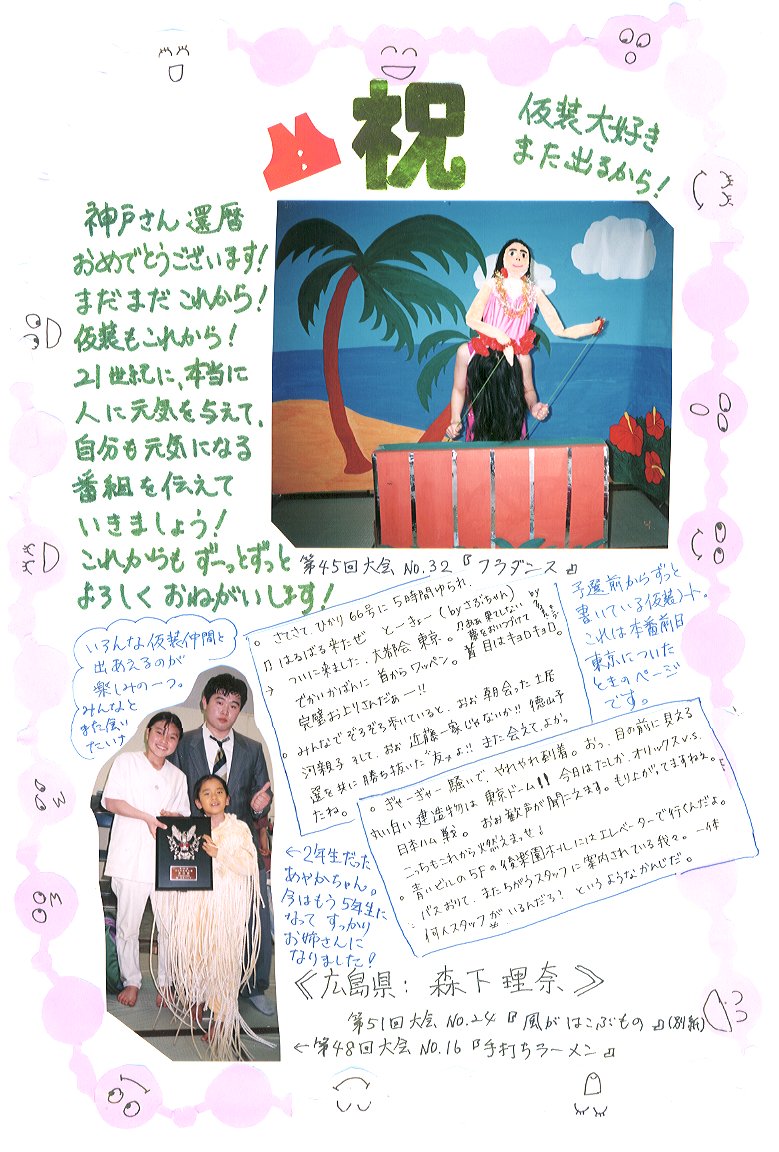 祝
仮装大好き
また出るから！
神戸さん還暦
おめでとうございます！
まだまだこれから！
仮装もこれから！
21世紀に、本当に
人に元気を与えて、
自分も元気になる
番組を伝えて
いきましょう！
これからもずーっとずっと
よろしくおねがいします！
第45回大会 No.32『フラダンス』
予選前からずっと
書いている仮装ノート。
これは本番前日
東京についた
ときのページ
です。
。さてさて、ひかり66号に5時間ゆられ、
♫はるばる来たぜ とーきょー（byさぶちゃん）
→ ついに来ました、大都会東京。
でかいかばんに首からワッペン。首目はキョロキョロ。
完璧お上りさんだぁー!!
。みんなでぞろぞろ歩いていると、おお朝会った土居
河親子 そして、おお 近藤一家じゃないか!! 徳山予
選を共に勝ち抜いた"友"よ!! また会えて、よか
たね。
。ぎゃーぎゃー騒いで、やれやれ到着。おぅ、目の前に見える
丸い白い建造物は東京ドーム!! 今日はたしか、オリックスv.s.
日本ハム戦。おお歓声が聞こえます。もり上がってますねぇ。
こっちもこれから燃えませ！
。青いビルの5Fの後楽園ホールにはエレベーターで行くんだよ。
バスおりて、またちがうスタッフに案内されている我々。一体
何人スタッフがいるんだろ？というようなかんじだ。
いろんな仮装仲間と
出あえるのが
楽しみの一つ。
みんなと
また会い
たいナ
←2年生だった
あやかちゃん。
今はもう5年生に
なってすっかり
お姉さんに
なりました！
≪広島県：森下理奈≫
第51回大会 No.24『風がはこぶもの』(別紙)
←第48回大会 No.16『手打ちラーメン』